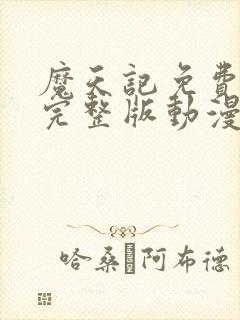 魔天記免費
完整版動漫
哈桑·阿布德